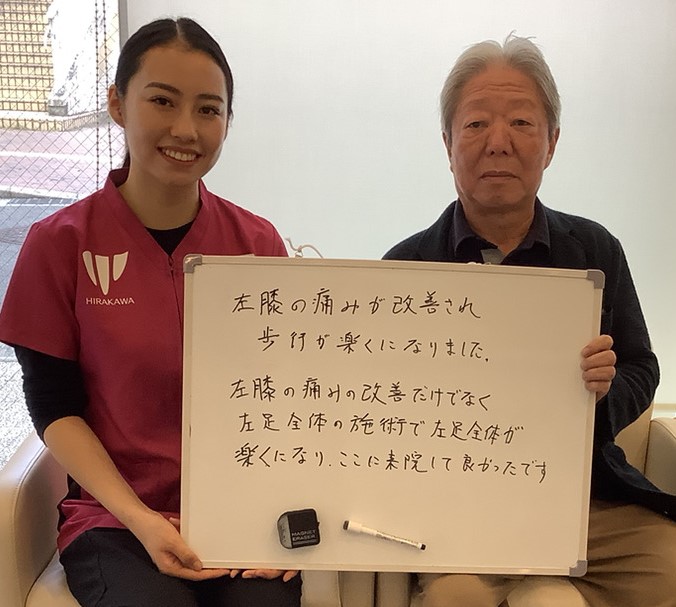 HIRAKAWA
左膝の痛みが改善され
歩行が楽くになりました。
左膝の痛みの改善だけでなく
左足全体の施術で左足全体が
楽くになり、ここに来院して良かったです
MAGNET
ERASER